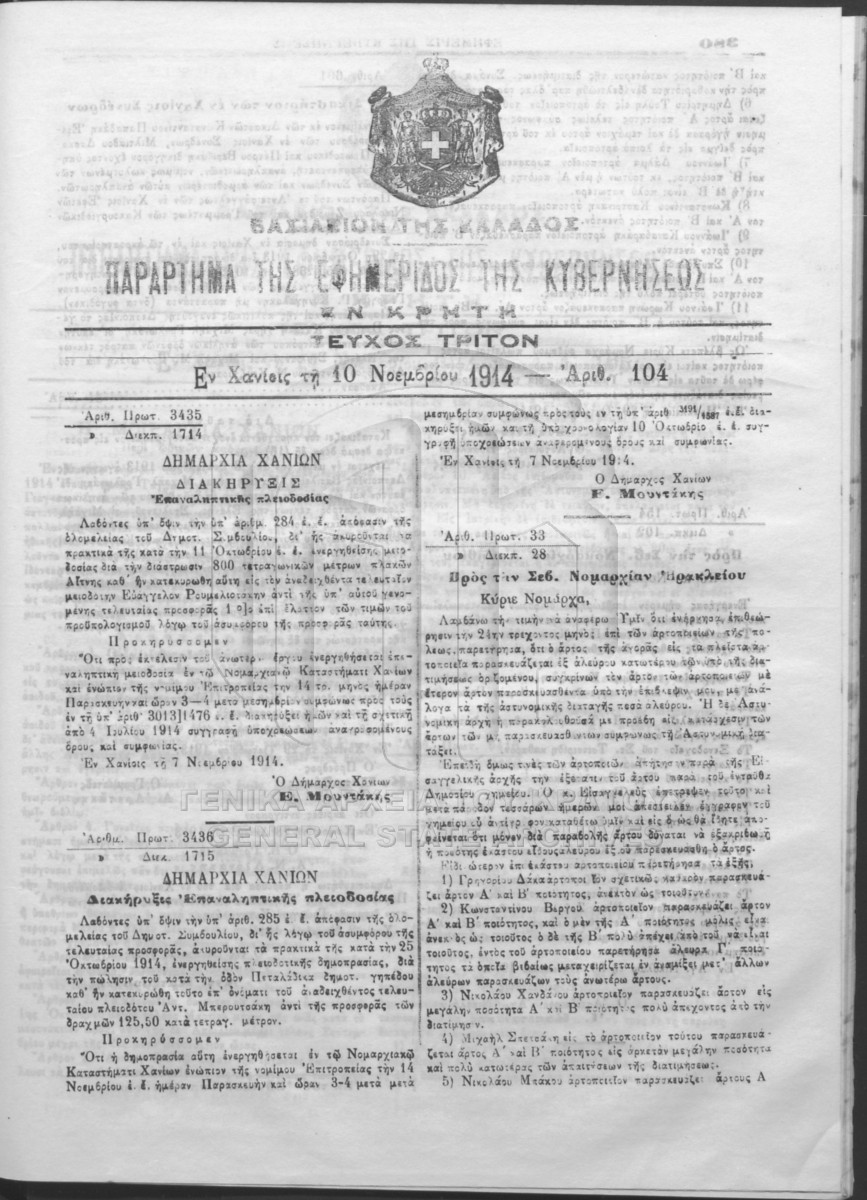 ΒΑΣΙΛΕΙΟΝ ΤΗΣ ΕΛΛΑΔΟΣ
ΠΑΡΑΡΤΗΜΑ ΤΗΣ ΕΦΗΜΕΡΙΔΟΣ ΤΗΣ ΚΥΒΕΡΝΗΣΕΩΣ
ΕΝ ΚΡΗΤΗ
ΤΕΥΧΟΣ ΤΡΙΤΟΝ
Εν Χανίοις τῇ 10 Νοεμβρίου 1914 — Ἀριθ. 104
Ἀριθ. Πρωτ. 3435
» Διεκπ. 1714
ΔΗΜΑΡΧΙΑ ΧΑΝΙΩΝ
ΔΙΑΚΗΡΥΞΙΣ
Ἐπαναληπτικῆς πλειοδοσίας
Λαβόντες ὑπ' ὄψιν τὴν ὑπ' ἀριθμ. 284 ἐ. ἔ. ἀπόφασιν τῆς
ὁλομελείας τοῦ Δημοτ. Συμβουλίου, δι' ἧς ἀκυροῦνται τὰ
πρακτικὰ τῆς κατὰ τὴν 11 Ὀκτωβρίου ἐ. ἔ. ἐνεργηθείσης μειο-
δοσίας διὰ τὴν διάστρωσιν 800 τετραγωνικῶν μέτρων πλακῶν
Λίτνης καθ' ἣν κατεκυρώθη αὕτη εἰς τὸν ἀναδειχθέντα τελευταῖον
μειοδότην Εὐάγγελον Ρουμελιωτάκην ἀντὶ τῆς ὑπ' αὐτοῦ γενο-
μένης τελευταίας προσφορᾶς 1 ο)ο ἐπὶ ἔλαττον τῶν τιμῶν τοῦ
προϋπολογισμοῦ λόγῳ τοῦ ἀσυμφόρου τῆς προσφορᾶς ταύτης.
Προκηρύσσομεν
Ὅτι πρὸς ἐκτέλεσιν τοῦ ἀνωτέρω ἔργου ἐνεργηθήσεται ἐπα-
ναληπτικὴ μειοδοσία ἐν τῷ Νομαρχιακῷ Καταστήματι Χανίων
καὶ ἐνώπιον τῆς νομίμου Ἐπιτροπείας τὴν 14 το. μηνὸς ἡμέραν
Παρασκευὴν καὶ ὥραν 3—4 μετὰ μεσημβρίαν συμφώνως πρὸς τοὺς
ἐν τῇ ὑπ' ἀριθ. 3013]1476 ἐ. ἔ. διακηρύξει ἡμῶν καὶ τῇ σχετικῇ
ἀπὸ 4 Ἰουλίου 1914 συγγραφῇ ὑποχρεώσεων ἀναγραφομένους
ὅρους καὶ συμφωνίας.
Ἐν Χανίοις τῇ 7 Νοεμβρίου 1914.
Ὁ Δήμαρχος Χανίων
Ε. Μουντάκης
Ἀριθμ. Πρωτ. 3436
» Διεκ. 1715
ΔΗΜΑΡΧΙΑ ΧΑΝΙΩΝ
Διακήρυξις Ἐπαναληπτικῆς πλειοδοσίας
Λαβόντες ὑπ' ὄψιν τὴν ὑπ' ἀριθ. 285 ἐ. ἔ. ἀπόφασιν τῆς ὁλο-
μελείας τοῦ Δημοτ. Συμβουλίου, δι' ἧς λόγῳ τοῦ ἀσυμφόρου τῆς
τελευταίας προσφορᾶς, ἀκυροῦνται τὰ πρακτικὰ τῆς κατὰ τὴν 25
Ὀκτωβρίου 1914, ἐνεργηθείσης πλειοδοτικῆς δημοπρασίας, διὰ
τὴν πώλησιν τοῦ κατὰ τὴν ὁδὸν Πεταλάδικα δημοτ. γηπέδου
καθ' ἣν κατεκυρώθη τοῦτο ἐπ' ὀνόματι τοῦ ἀναδειχθέντος τελευ-
ταίου πλειοδότου Ἀντ. Μπερουτσάκη ἀντὶ τῆς προσφορᾶς τῶν
δραχμῶν 125,50 κατὰ τετραγ. μέτρον.
Προκηρύσσομεν
Ὅτι ἡ δημοπρασία αὕτη ἐνεργηθήσεται ἐν τῷ Νομαρχιακῷ
Καταστήματι Χανίων ἐνώπιον τῆς νομίμου Ἐπιτροπείας τὴν 14
Νοεμβρίου ἐ. ἔ. ἡμέραν Παρασκευὴν καὶ ὥραν 3-4 μετὰ μετὰ
μεσημβρίαν συμφώνως πρὸς τοὺς ἐν τῇ ὑπ' ἀριθ. ἐ. ἔ. δια-
κηρύξει ἡμῶν καὶ τῇ ὑπὸ χρονολογίαν 10 Ὀκτωβρίο ἐ. ἔ. συγ-
γραφῇ ὑποχρεώσεων ἀναφερομένους ὅρους καὶ συμφωνίας.
Ἐν Χανίοις τῇ 7 Νοεμβρίου 1914.
Ὁ Δήμαρχος Χανίων
Ε. Μουντάκης
Ἀριθ. Πρωτ. 33
» Διεκπ. 28
Πρὸς τὴν Σεβ. Νομαρχίαν Ἡρακλείου
Κύριε Νομάρχα,
Λαμβάνω τὴν τιμὴν νὰ ἀναφέρω Ὑμῖν ὅτι ἐνήργησα ἐπιθεώ-
ρησιν τὴν 24ην τρέχοντος μηνὸς ἐπὶ τῶν ἀρτοποιείων τῆς πό-
λεως, παρετήρησα, ὅτι ὁ ἄρτος τῆς ἀγορᾶς εἰς τὰ πλεῖστα ἀρ-
τοποιεῖα παρασκευάζεται ἐξ ἀλεύρου κατωτέρου τῶν ὑπὸ τῆς δια-
τιμήσεως ὁριζομένου, συγκρίνων τὸν ἄρτον τῶν ἀρτοποιῶν μὲ
ἕτερον ἄρτον παρασκευασθέντα ὑπὸ τὴν ἐπίβλεψίν μου, μὲ ἀνά-
λογα τὰ τῆς ἀστυνομικῆς διαταγῆς ποσὰ ἀλεύρου. Ἡ δὲ Ἀστυ-
νομικὴ ἀρχὴ ἡ παρακολουθοῦσά με προέβη εἰς κατάσχεσιν τῶν
ἄρτων τῶν μὴ παρασκευασθέντων συμφώνως τῇ Ἀστυνομικῇ δια-
τάξει.
Ἐπειδὴ ὅμως τινὲς τῶν ἀρτοποιῶν ἀπῄτησαν παρὰ τῆς Εἰ-
σαγγελικῆς ἀρχῆς τὴν ἐξέτασιν τοῦ ἄρτου παρὰ τοῦ ἐνταῦθα
Δημοσίου χημείου. Ὁ κ. Εἰσαγγελεὺς ἐπέτρεψεν τοῦτο καὶ
μετὰ πάροδον τεσσάρων ἡμερῶν μοὶ ἀπέστειλεν ἔγγραφον τοῦ
χημείου οὗ ἀντίγραφον καταθέτω ὑμῖν καὶ εἰς ὃ ὡς θὰ ἴδητε ἀπο-
φαίνεται ὅτι μόνον διὰ παραβολῆς ἄρτου δύναται νὰ ἐξακριβωθῇ
ἡ ποιότης ἑκάστου εἴδους ἀλεύρου ἐξ οὗ παρεσκευάσθη ὁ ἄρτος.
Εἰδικώτερον ἐπὶ ἑκάστου ἀρτοποιείου παρετήρησα τὰ ἑξῆς.
1) Γρηγορίου Δακα ἀρτοποιεῖον σχετικῶς καθαρὸν παρασκευά-
ζει ἄρτον Α' καὶ Β' ποιότητος, ἀνεκτὸν ὡς τοιοῦτον.
2) Κωνσταντίνου Βιργου ἀρτοποιεῖον παρασκευάζει ἄρτον
Α' καὶ Β' ποιότητος, καὶ ὁ μὲν τῆς Α' ποιότητος μόλις εἶναι
ἀνεκτὸς ὡς τοιοῦτος ὁ δὲ τῆς Β' πολὺ ἀπέχει ἀπὸ τοῦ νὰ εἶναι
τοιοῦτος, ἐντὸς τοῦ ἀρτοποιείου παρετήρησα ἄλευρα Γ. ποιό-
τητος τὰ ὁποῖα βεβαίως μεταχειρίζεται ἐν ἀναμίξει μετ' ἄλλων
ἀλεύρων παρασκευάζων τοὺς ἀνωτέρω ἄρτους.
3) Νικολάου Χανδάκου ἀρτοποιεῖον παρασκευάζει ἄρτον εἰς
μεγάλην ποσότητα Α' καὶ Β' ποιότητος πολὺ ἀπέχοντος ἀπὸ τὴν
διατίμησιν.
4) Μιχαὴλ Στετσάκη εἰς τὸ ἀρτοποιεῖον τούτου παρασκευά-
ζεται ἄρτος Α' καὶ Β' ποιότητος εἰς ἀρκετὰ μεγάλην ποσότητα
καὶ πολὺ κατωτέρας τῶν ἀπαιτήσεων τῆς διατιμήσεως.
5) Νικολάου Μπάκου ἀρτοποιεῖον παρασκευάζει ἄρτους Α
ΓΕΝΙΚΑ ΑΡΧΕΙΑ
GENERAL STATE